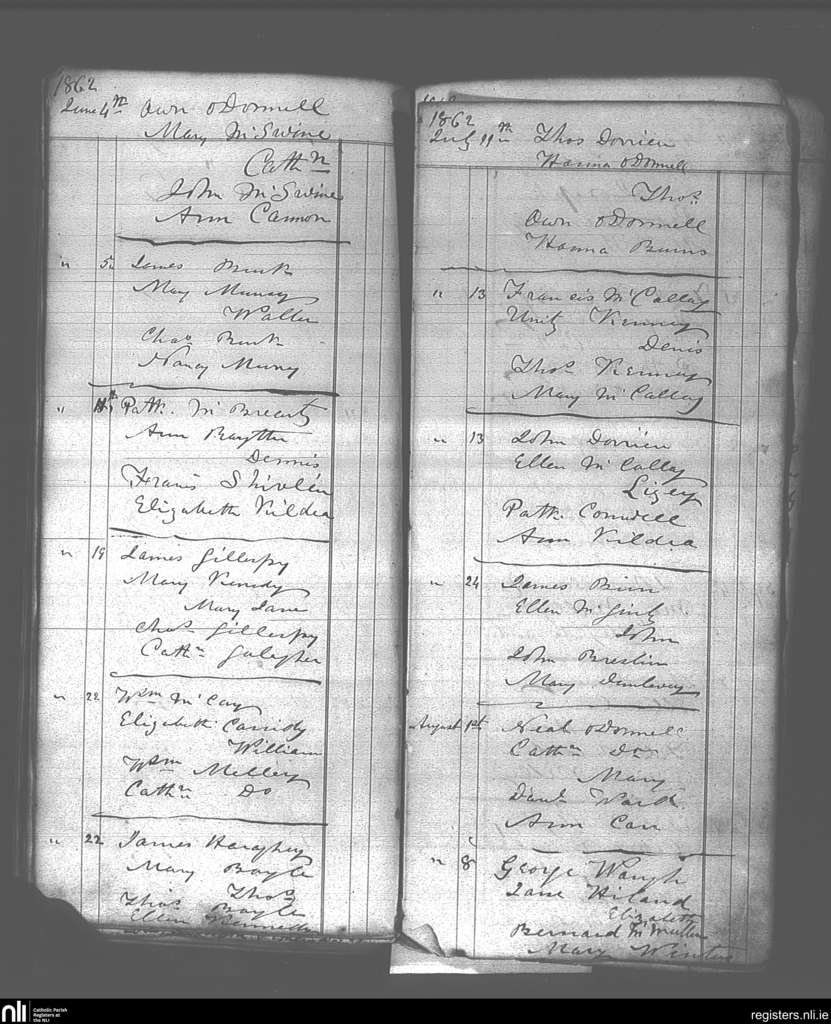 1862
June 4th Own ODonnell
Mary McSwine
Cathn
John McSwine
Ann Cannon
" 5 James Bursk
May Muney
Walter
Chas Bursk
Nancy Muney
" Patk. McBrearty
Ann
Dennis
Francis Shivlin
Elizabeth Kildea
" 19 James Gillespy
Mary Kenedy
Mary Jane
Chas. Gillespy
Cathn Galagher
" 22 Wm McCay
Elizabeth Cassidy
William
Wm Melley
Cathn Do
" 22 James Haughey
Mary Boyle
Thos
Thos Boyle
Ellen
1862
July 11th Thos Dorrien
Hanna ODonnell
Thos.
Own ODonnell
Hanna Burns
" 13 Francis McCallay
Unity Kenney
Denis
Thos. Kenney
Mary McCallay
" 13 John Dorrien
Ellen McCallay
Lizey
Patk. Conwell
Ann Kildea
" 24 James Binn
Ellen McGinty
John
John Breslin
Mary Dunlevey
August 1st Neal ODonnell
Cathn Do
Mary
Danl. Ward
Ann Carr
" 8 George Waugh
Jane Hiland
Elizabeth
Bernard McMullin
Mary Winters
nli
Catholic Parish
Registers at
the NLI
registers.nli.ie